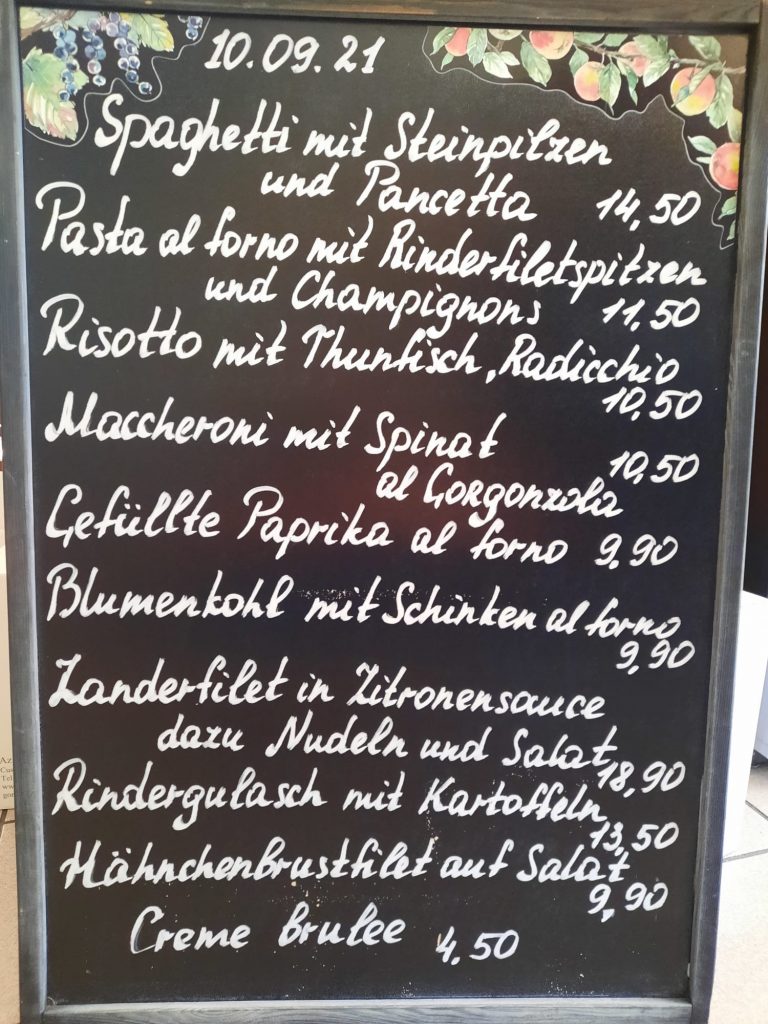 10.09.21
Spaghetti mit Steinpilzen
und Pancetta 14,50
Pasta al forno mit Rinderfiletspitzen
und Champignons 11,50
Risotto mit Thunfisch, Radicchio
10,50
Maccheroni mit Spinat
al Gorgonzola 10,50
Gefüllte Paprika al forno 9,90
Blumenkohl mit Schinken al forno
9,90
Zanderfilet in Zitronensauce
dazu Nudeln und Salat
18,90
Rindergulasch mit Kartoffeln
13,50
Hähnchenbrustfilet auf Salat
9,90
Creme brulee 4,50